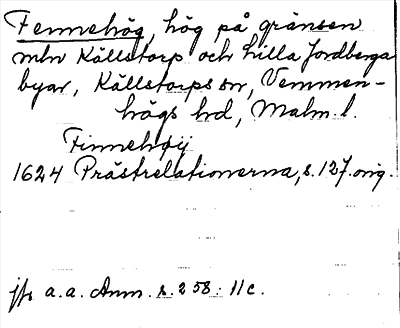 Fennehög, hög på gränsen
mln Källstorp och Lilla Jordberga
byar, Källstorps sn, Vemmen-
högs hd, Malm. l.
Finnehøÿ
1624 Prästrelationerna, s. 127. orig.
jfr a.a. Anm. s. 258: 11c.